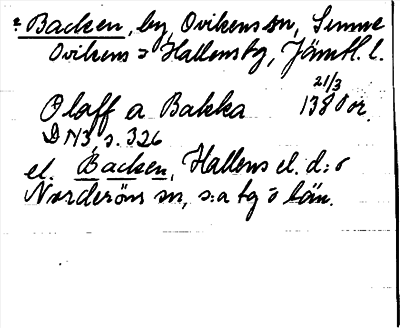 ? Backen, by, Ovikens sn, Sunne
Ovikens o Hallens tg, Jämtl. l.
21/3
Olaff a Bakka 1380 or.
DN 3, s. 326
el. Backen, Hallens el. d:o
Norderöns sn, s:a tg o län.